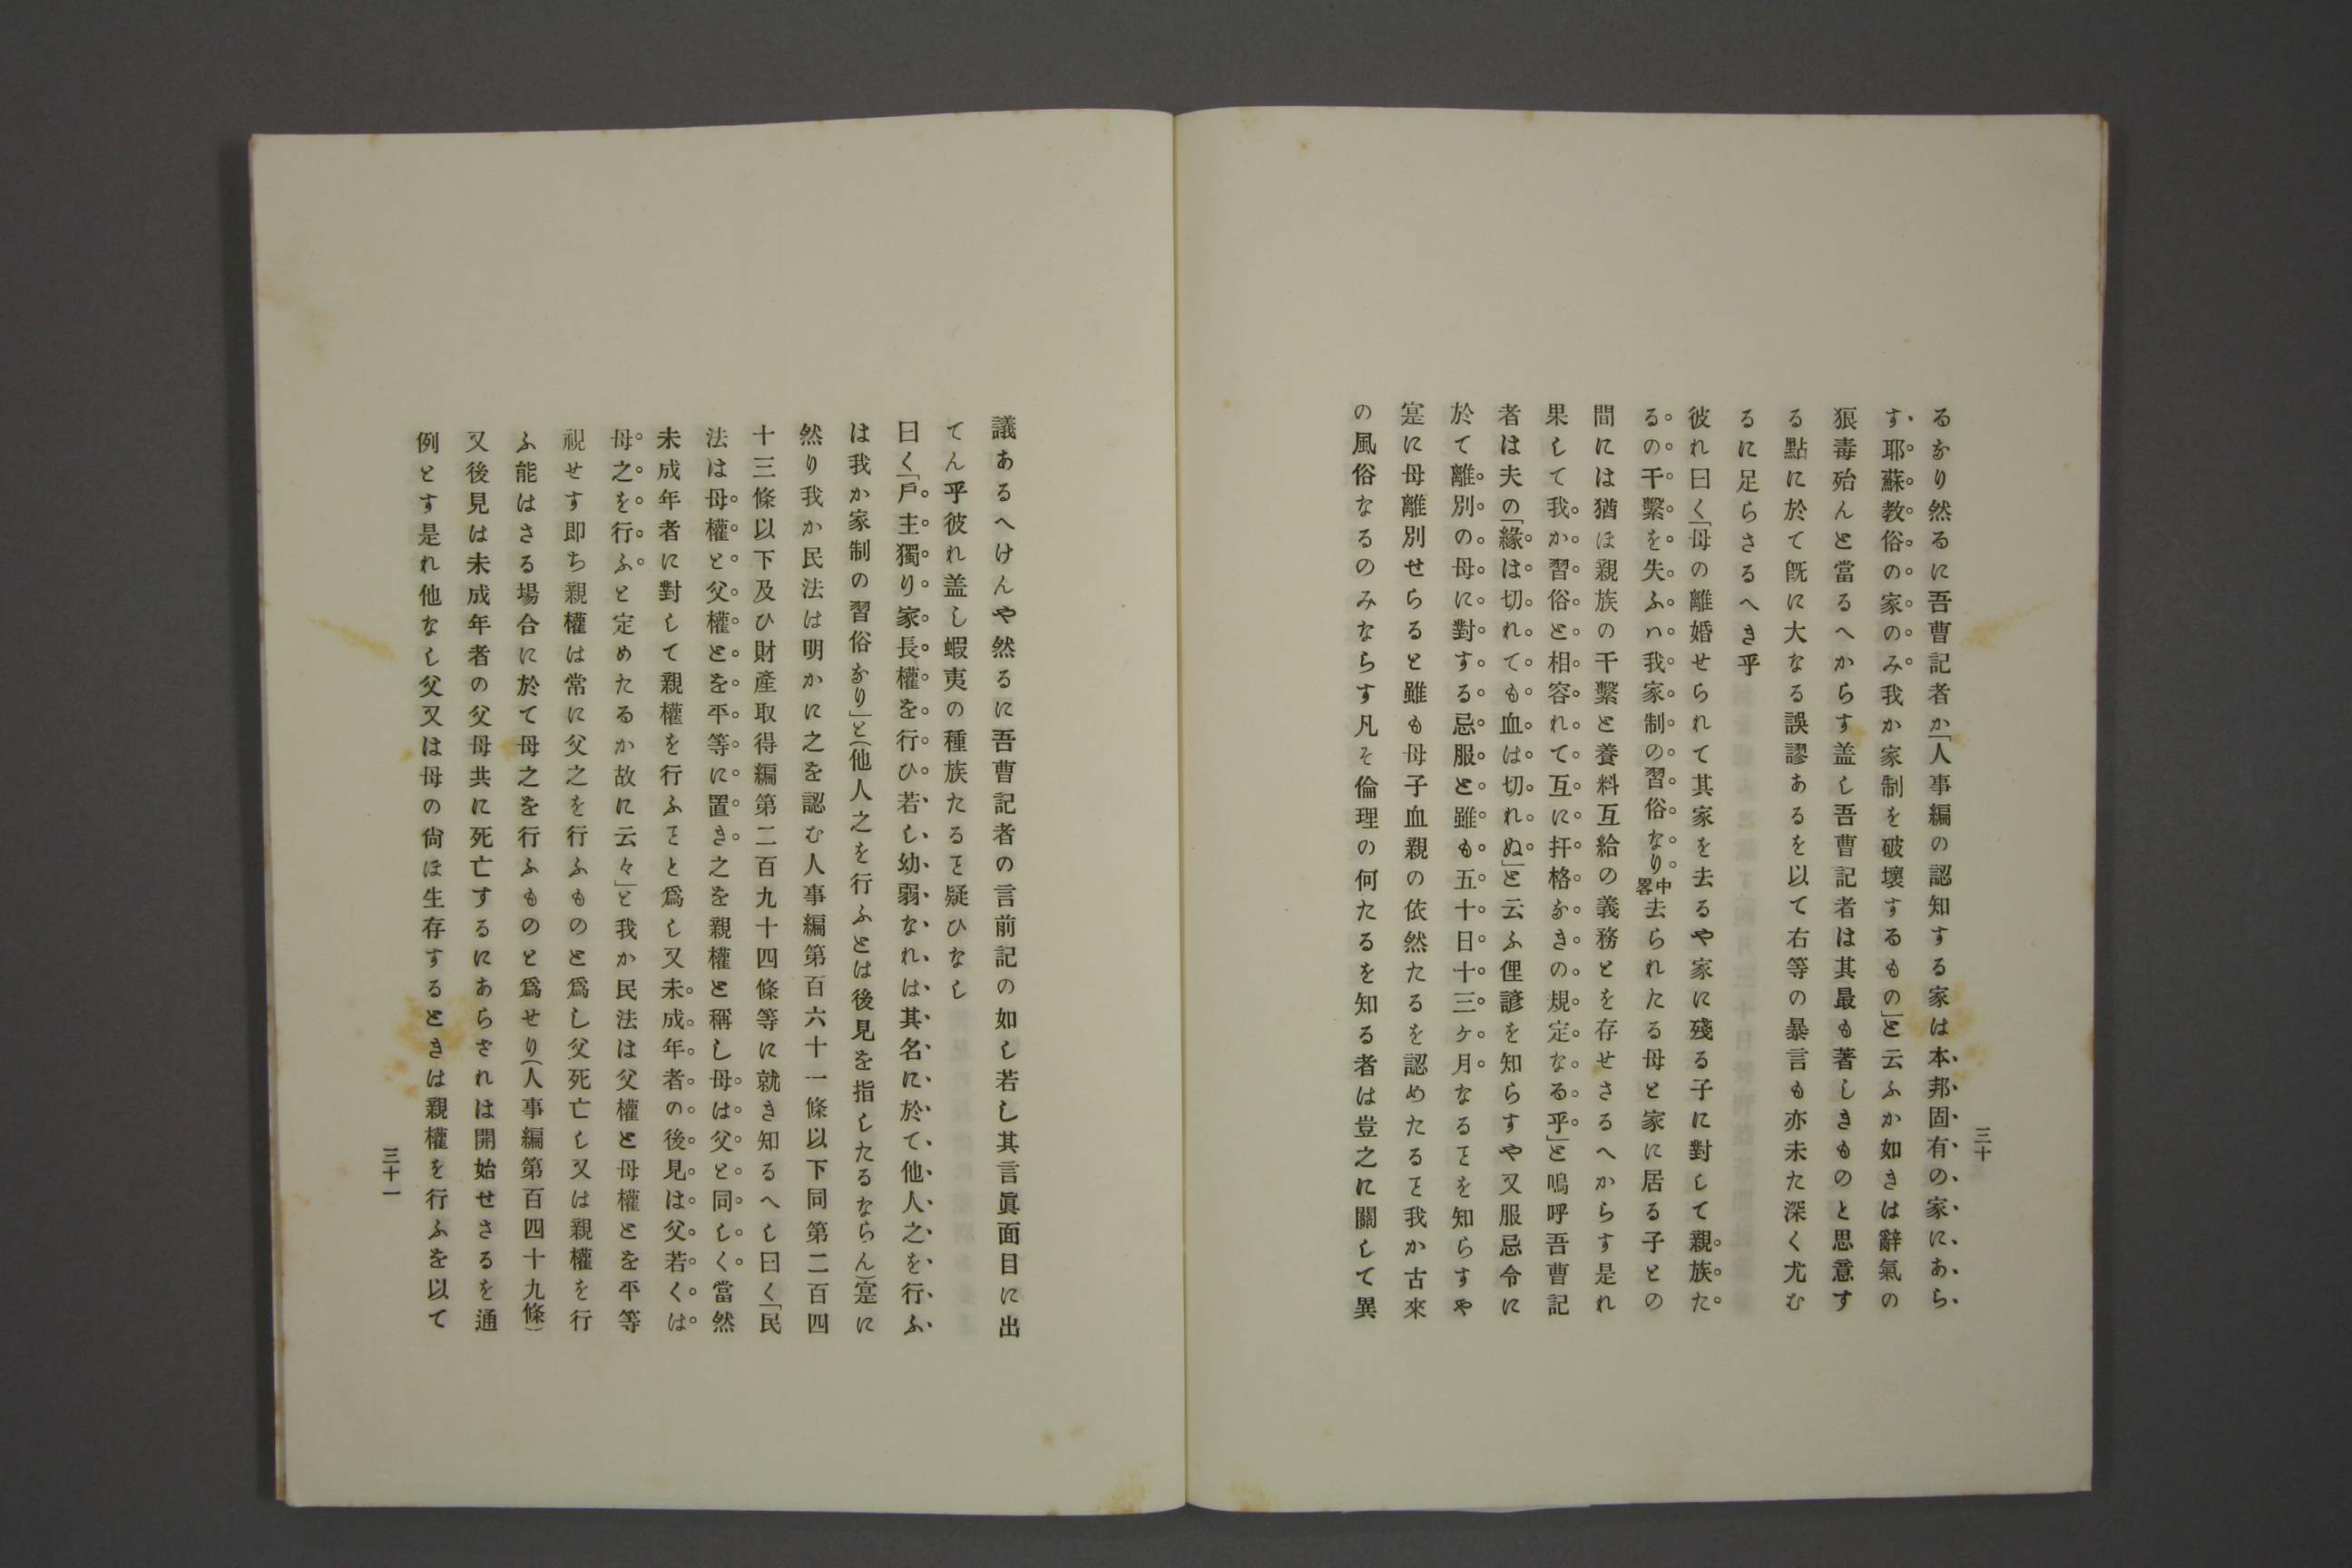 三十
るなり然るに吾曹記者か「人事編の認知する家は本邦固有の家にあら
す耶蘇教俗の家のみ我か家制を破壞するもの」と云ふか如きは辭氣の
狠毒殆んと當るへからす盖し吾曹記者は其最も著しきものと思意す
る點に於て旣に大なる誤謬あるを以て右等の暴言も亦未た深く尤む
るに足らさるへき乎
彼れ曰く「母の離婚せられて其家を去るや家に殘る子に對して親族た
るの干繫を失ふハ我家制の習俗なり中畧去られたる母と家に居る子との
間には猶ほ親族の干繫と養料互給の義務とを存せさるへからす是れ
果して我か習俗と相容れて互に扞格なきの規定なる乎」と嗚呼吾曹記
者は夫の「緣は切れても血は切れぬ」と云ふ俚諺を知らすや又服忌令に
於て離別の母に對する忌服と雖も五十日十三ケ月なるヿを知らすや
寔に母離別せらると雖も母子血親の依然たるを認めたるヿ我か古來
の風俗なるのみならす凡そ倫理の何たるを知る者は豈之に關して異
議あるへけんや然るに吾曹記者の言前記の如し若し其言眞面目に出
てん乎彼れ盖し蝦夷の種族たるヿ疑ひなし
曰く「戶主獨り家長權を行ひ若し幼弱なれは其名に於て他人之を行ふ
は我か家制の習俗なり」と(他人之を行ふとは後見を指したるならん)寔に
然り我か民法は明かに之を認む人事編第百六十一條以下同第二百四
十三條以下及ひ財產取得編第二百九十四條等に就き知るへし曰く「民
法は母權と父權とを平等に置き之を親權と稱し母は父と同しく當然
未成年者に對して親權を行ふヿと爲し又未成年者の後見は父若くは
母之を行ふと定めたるか故に云々」と我か民法は父權と母權とを平等
視せす卽ち親權は常に父之を行ふものと爲し父死亡し又は親權を行
ふ能はさる場合に於て母之を行ふものと爲せり(人事編第百四十九條)
又後見は未成年者の父母共に死亡するにあらされは開始せさるを通
例とす是れ他なし父又は母の尙ほ生存するときは親權を行ふを以て
三十一